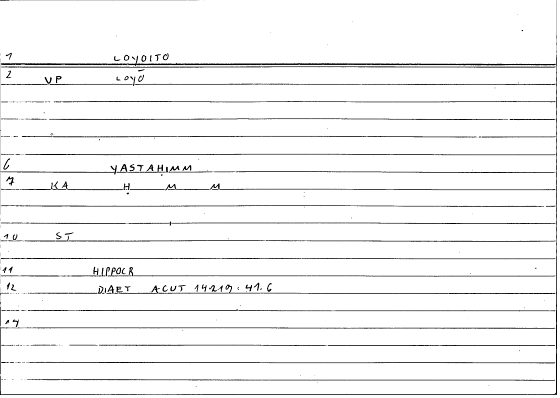 1 LOYOITO
2 VP LOYŌ
6 YASTAḤIMM
7 KA Ḥ M M
10 ST
11 HIPPOCR
12 DIAET ACUT 14219: 41.6
14